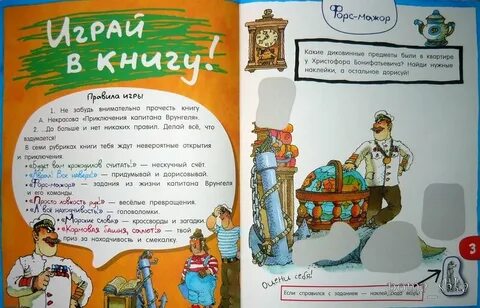 ИГРАЙ
В КНИГУ!
Правила игры
1. Не забудь внимательно прочесть книгу
А. Некрасова «Приключения капитана Врунгеля».
2. ...Да больше и нет никаких правил. Делай всё, что
вздумается!
В семи рубриках книги тебя ждут невероятные открытия
и приключения
•«Будет вам крокодилов считать!» — нескучный счёт.
•«Аврал! Все наверх!» — придумывай и дорисовывай.
•«Форс-мажор» — задания из жизни капитана Врунгеля
и его команды.
•«Просто ловкость рук!» — весёлые превращения.
•«А всё находчивость» — головоломки.
•«Морские слова» — кроссворды и загадки.
•«Кормовая башня, салют!» — твой
приз за находчивость и смекалку.
Форс-мажор
Какие диковинные предметы были в квартире
у Христофора Бонифатьевича? Найди нужные
наклейки, а остальное дорисуй!
3
Оцени себя!
Если справился с заданием — наклей мой якорь!